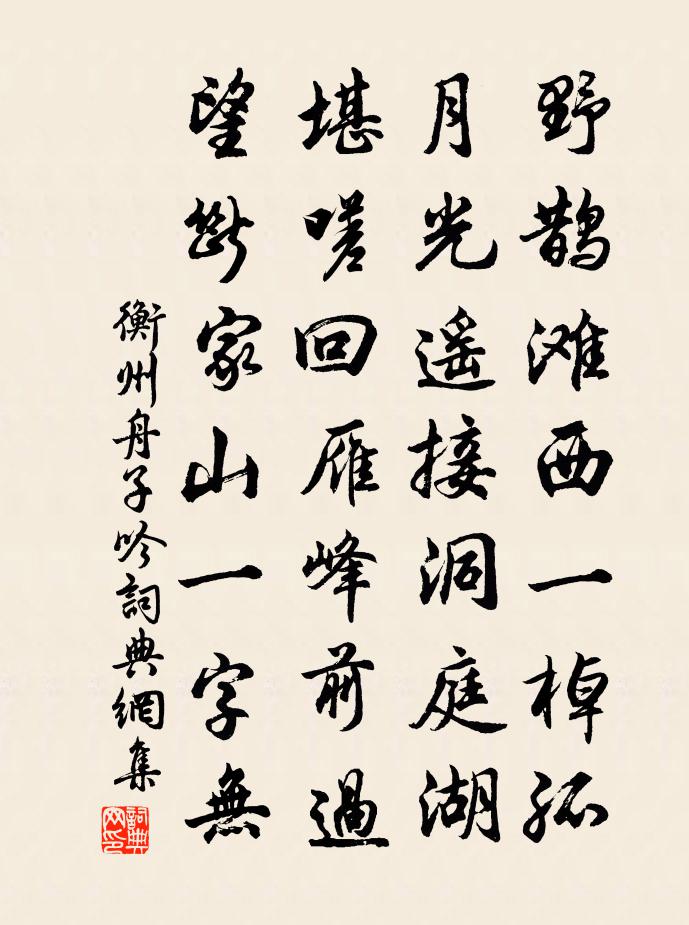 野鹊滩西一棹孤
月光遥接洞庭湖
堪嗟回雁峰前過
望斷家山一字無
衡州舟子吟詞典網集
詞典网印